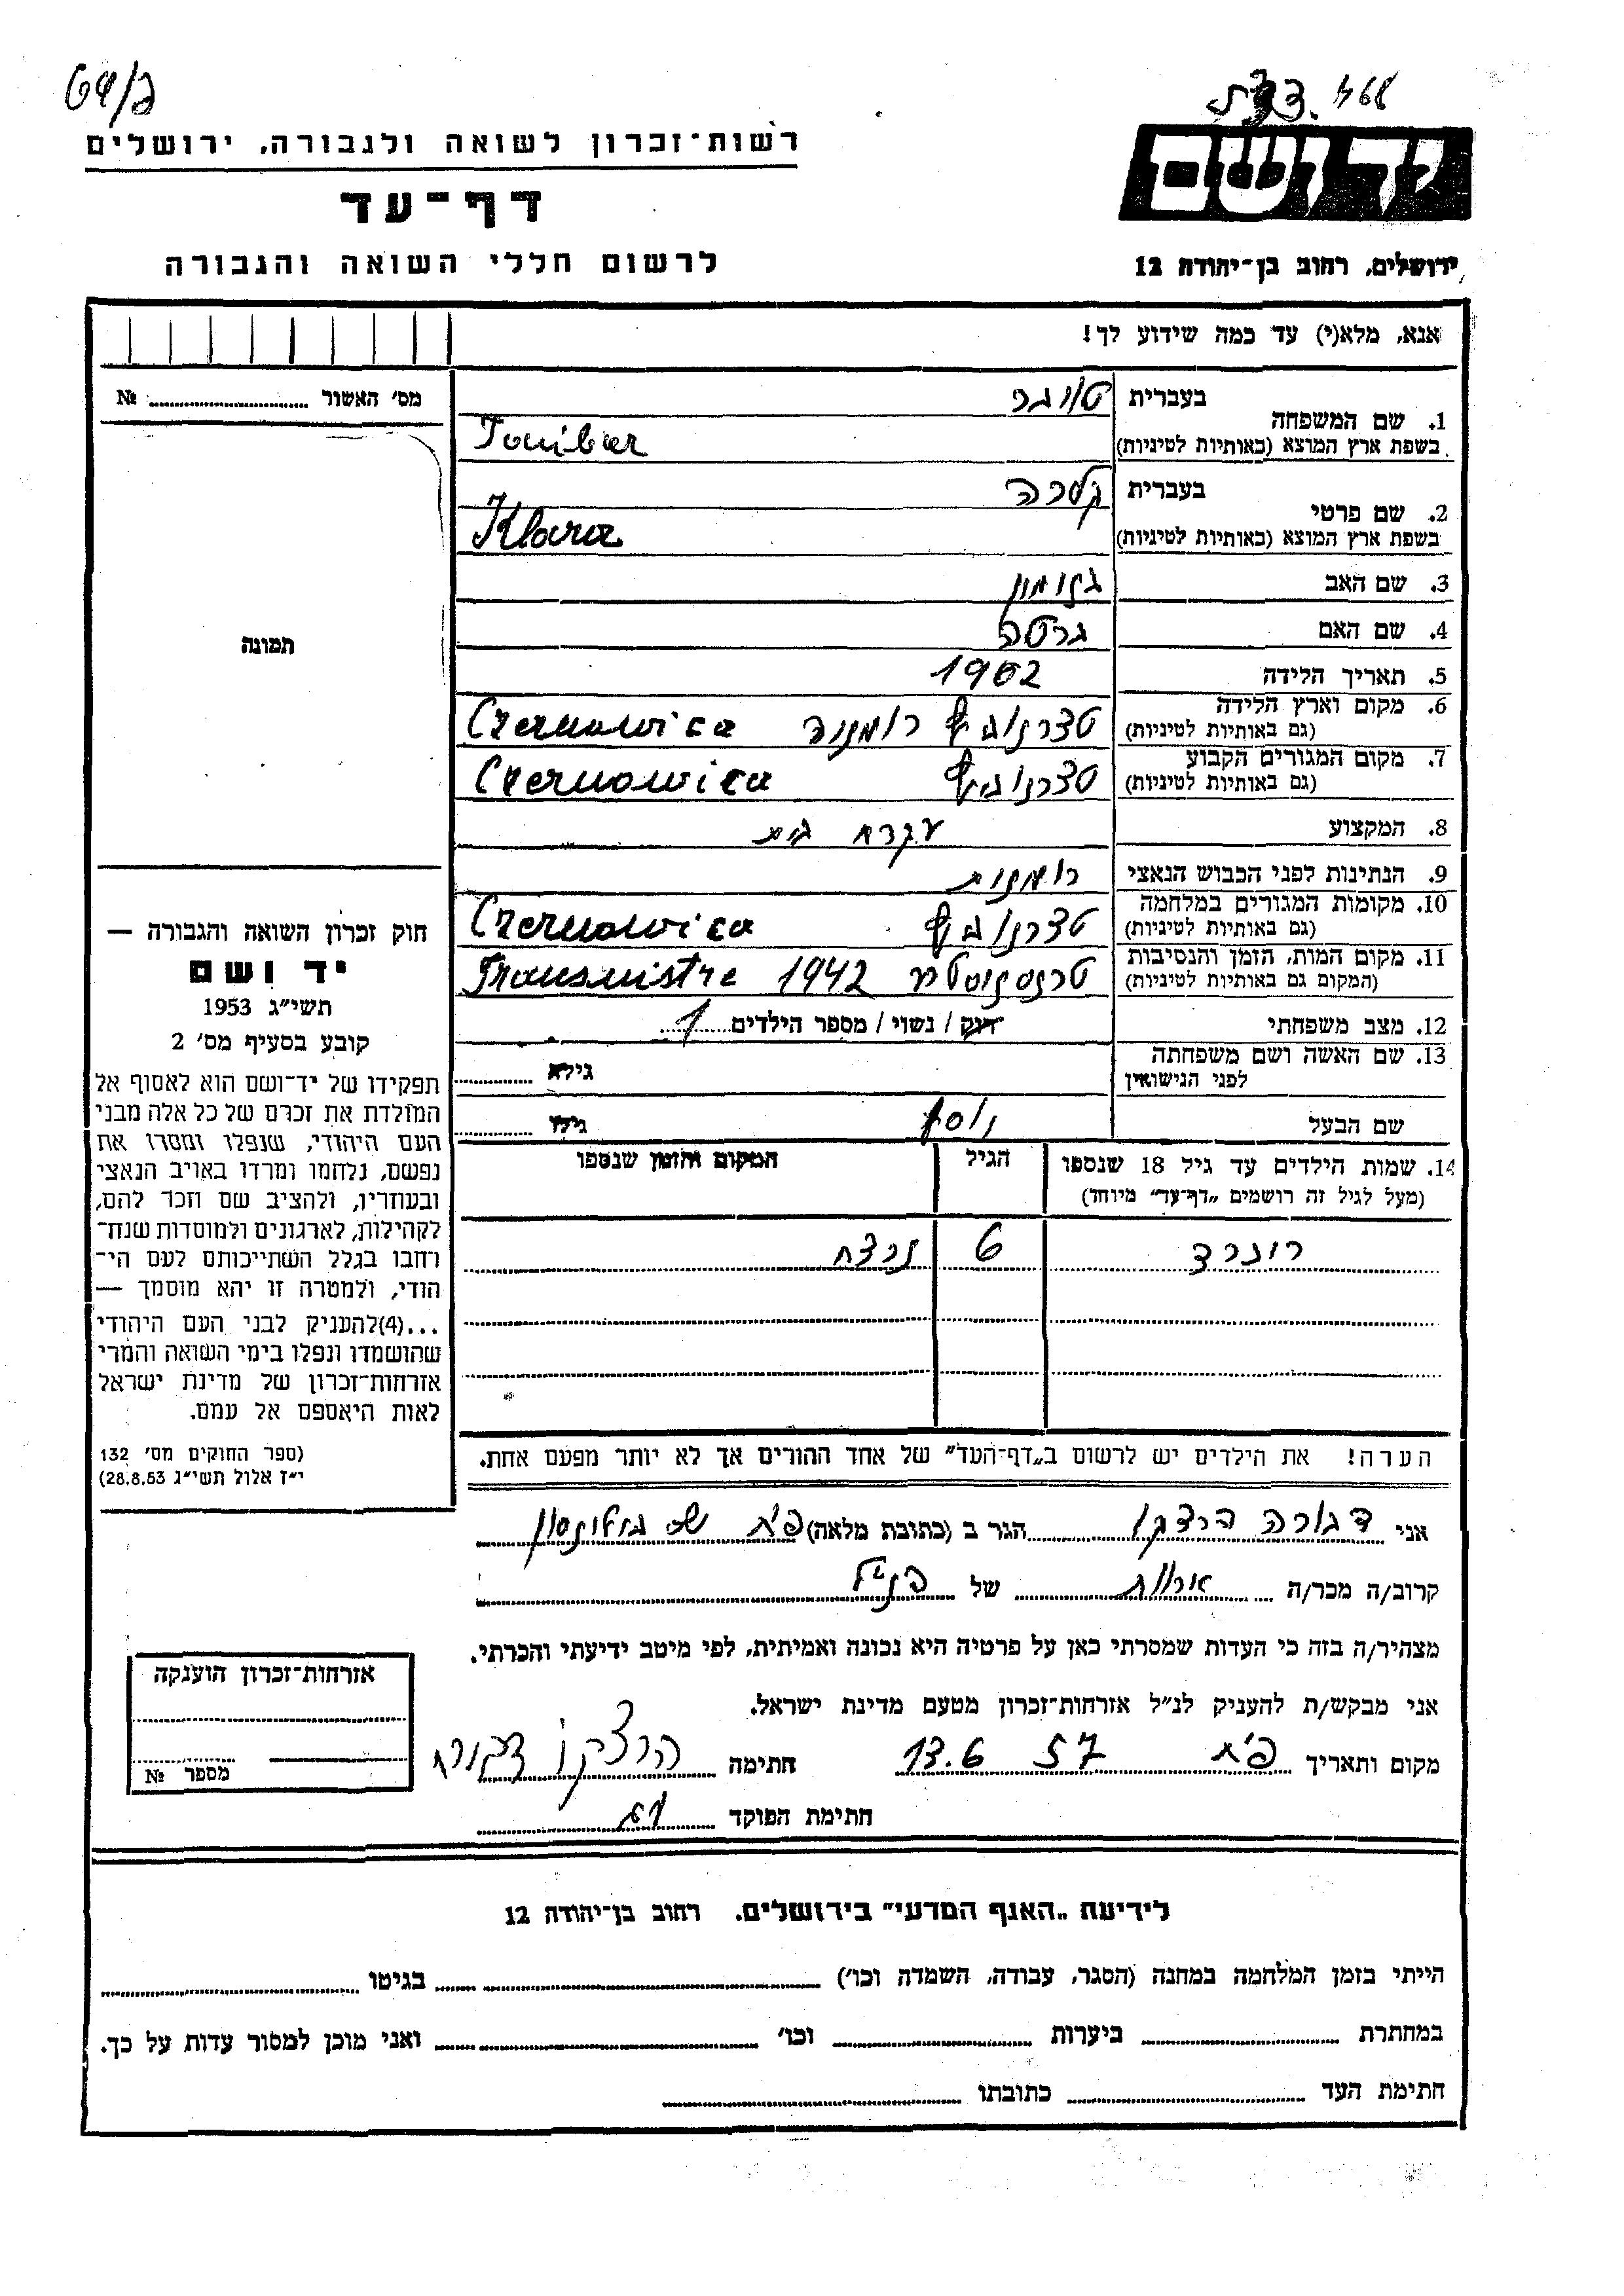 יד ושם
ירושלים, רחוב בן־יהודה 12
רשות־זכרון לשואה ולגבורה, ירושלים
דף־עד
לרשום חללי השואה והגבורה
אנא, מלא(י) עד כמה שידוע לך!
1. שם המשפחה בעברית
בשפת ארץ המוצא (באותיות לטיניות)
2. שם פרטי בעברית קלרה
בשפת ארץ המוצא (באותיות לטיניות) Klara
3. שם האב
4. שם האם ברטה
5. תאריך הלידה 1902
6. מקום וארץ הלידה
(גם באותיות לטיניות) רומניה
7. מקום המגורים הקבוע
(גם באותיות לטיניות)
8. המקצוע עקרת בית
9. הנתינות לפני הכבוש הנאצי רומנית
10. מקומות המגורים במלחמה
(גם באותיות לטיניות)
11. מקום המות, הזמן והנסיבות
(המקום גם באותיות לטיניות) 1942 Transnistre
12. מצב משפחתי רווק / נשוי / מספר הילדים 1
13. שם האשה ושם משפחתה
לפני הנישואין גילא
שם הבעל יוסף גילו
14. שמות הילדים עד גיל 18 שנספו
(מעל לגיל זה רושמים „דף־עד” מיוחד) הגיל המקום והזמן שנספו
6 נרצח
הערה! את הילדים יש לרשום ב„דף־העד” של אחד ההורים אך לא יותר מפעם אחת.
אני דבורה הגר ב (כתובת מלאה) פ״ת
קרוב/ה מכר/ה אחות של הנ״ל
מצהיר/ה בזה כי העדות שמסרתי כאן על פרטיה היא נכונה ואמיתית, לפי מיטב ידיעתי והכרתי.
אני מבקש/ת להעניק לנ״ל אזרחות־זכרון מטעם מדינת ישראל.
מקום ותאריך פ״ת 13.6 57 חתימה
חתימת הפוקד
מס׳ האשור №
תמונה
חוק זכרון השואה והגבורה —
יד ושם
תשי״ג 1953
קובע בסעיף מס׳ 2
תפקידו של יד־ושם הוא לאסוף אל
המולדת את זכרם של כל אלה מבני
העם היהודי, שנפלו ומסרו את
נפשם, נלחמו ומרדו באויב הנאצי
ובעוזריו, ולהציב שם וזכר להם,
לקהילות, לארגונים ולמוסדות שנח־
רחבו בגלל השתייכותם לעם הי־
הודי, ולמטרה זו יהא מוסמך —
...(4)להעניק לבני העם היהודי
שהושמדו ונפלו בימי השואה והמרי
אזרחות־זכרון של מדינת ישראל
לאות היאספם אל עמם.
(ספר החוקים מס׳ 132
י״ז אלול תשי״ג 28.8.53)
אזרחות־זכרון הוענקה
מספר №
לידיעת „האגף המדעי” בירושלים. רחוב בן־יהודה 12
הייתי בזמן המלחמה במחנה (הסגר, עבודה, השמדה וכו׳) בגיטו
במחתרת ביערות וכו׳ ואני מוכן למסור עדות על כך.
חתימת העד כתובתו